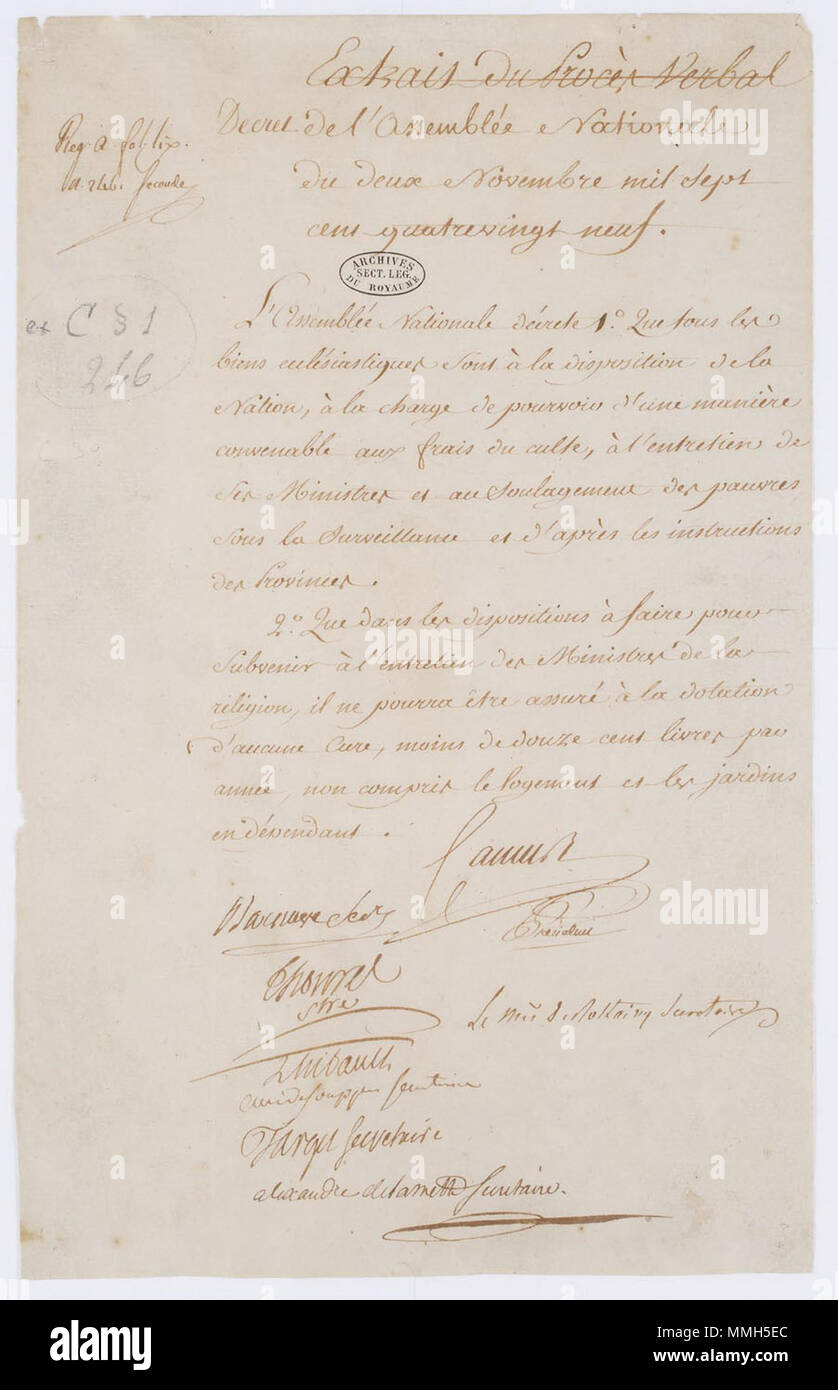 Extrait du Procès Verbal
Decret de l'Assemblée Nationale
du deux Novembre mil sept
cent quatrevingt neuf.
Reg. A fol. lix.
n. 246. seconde
ARCHIVES
SECT. LEG.
DU ROYAUME
ex C § 1
246
L'Assemblée Nationale décrete 1.° Que tous les
biens eclésiastiques sont à la disposition de la
Nation, à la charge de pourvoir d'une manière
convenable aux frais du culte, à l'entretien de
ses Ministres et au soulagement des pauvres
sous la surveillance et d'après les instructions
des Provinces.
2.° Que dans les dispositions à faire pour
subvenir à l'entretien des Ministres de la
réligion, il ne pourra être assuré à la dotation
d'aucune Cure, moins de douze cent livres par
année, non compris le logement et les jardins
en dépendant.
Camus
Président
Barnave
Thouret
stre
Thibault
curé de souppes secretaire
Target secretaire
alexandre de lameth secretaire.
alamy
alamy
Image ID: MMH5EC
www.alamy.com